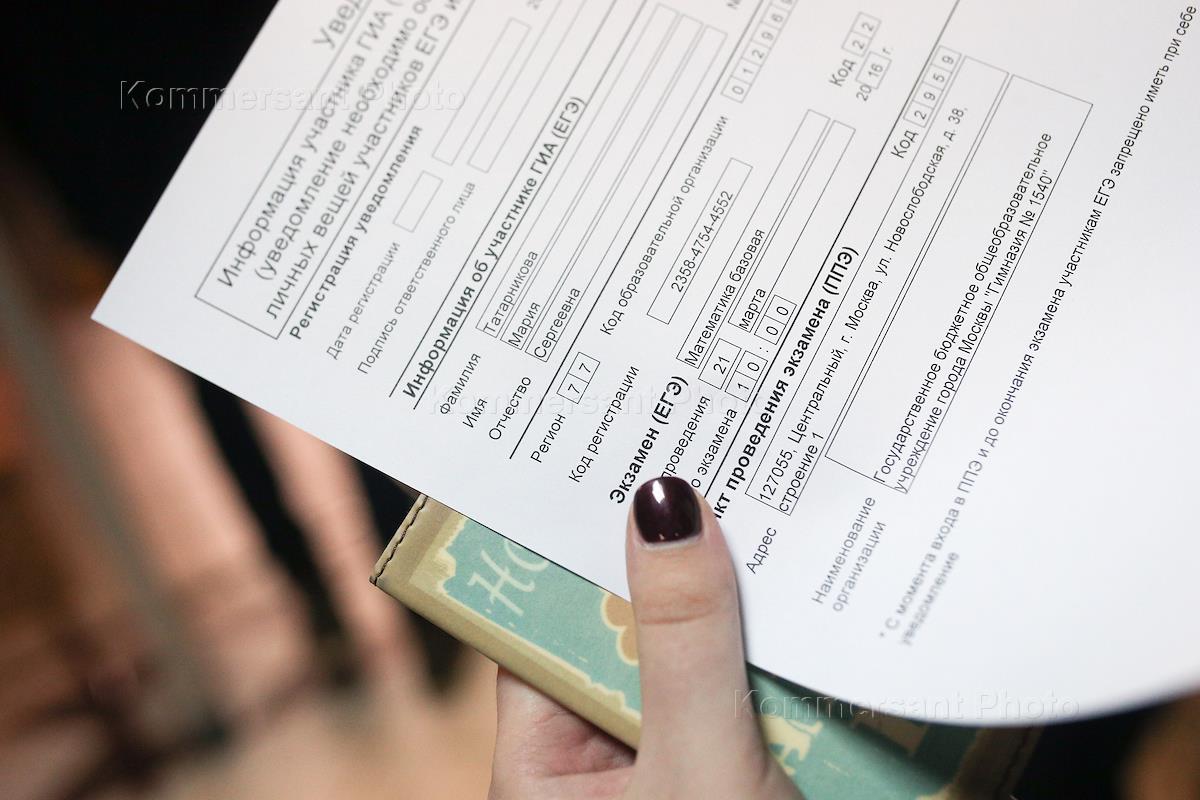 Увед
Информация участника ГИА (
(уведомление необходимо о
личных вещей участников ЕГЭ и
Регистрация уведомления
20
Дата регистрации
Подпись ответственного лица
Информация об участнике ГИА (ЕГЭ)
Фамилия Татарникова
Имя Мария
Отчество Сергеевна
№
Регион 77
Код образовательной организации 01296
Код регистрации 2358-4754-4552
Экзамен (ЕГЭ) Математика базовая Код 22
проведения 21 марта 2016 г.
о экзамена 10:00
кт проведения экзамена (ППЭ) Код 2959
Адрес 127055, Центральный, г. Москва, ул. Новослободская, д. 38,
строение 1
Наименование Государственное бюджетное общеобразовательное
организации учреждение города Москвы "Гимназия № 1540"
* С момента входа в ППЭ и до окончания экзамена участникам ЕГЭ запрещено иметь при себе
уведомление
Kommersant Photo
Kommersant Photo
Kommersant Photo